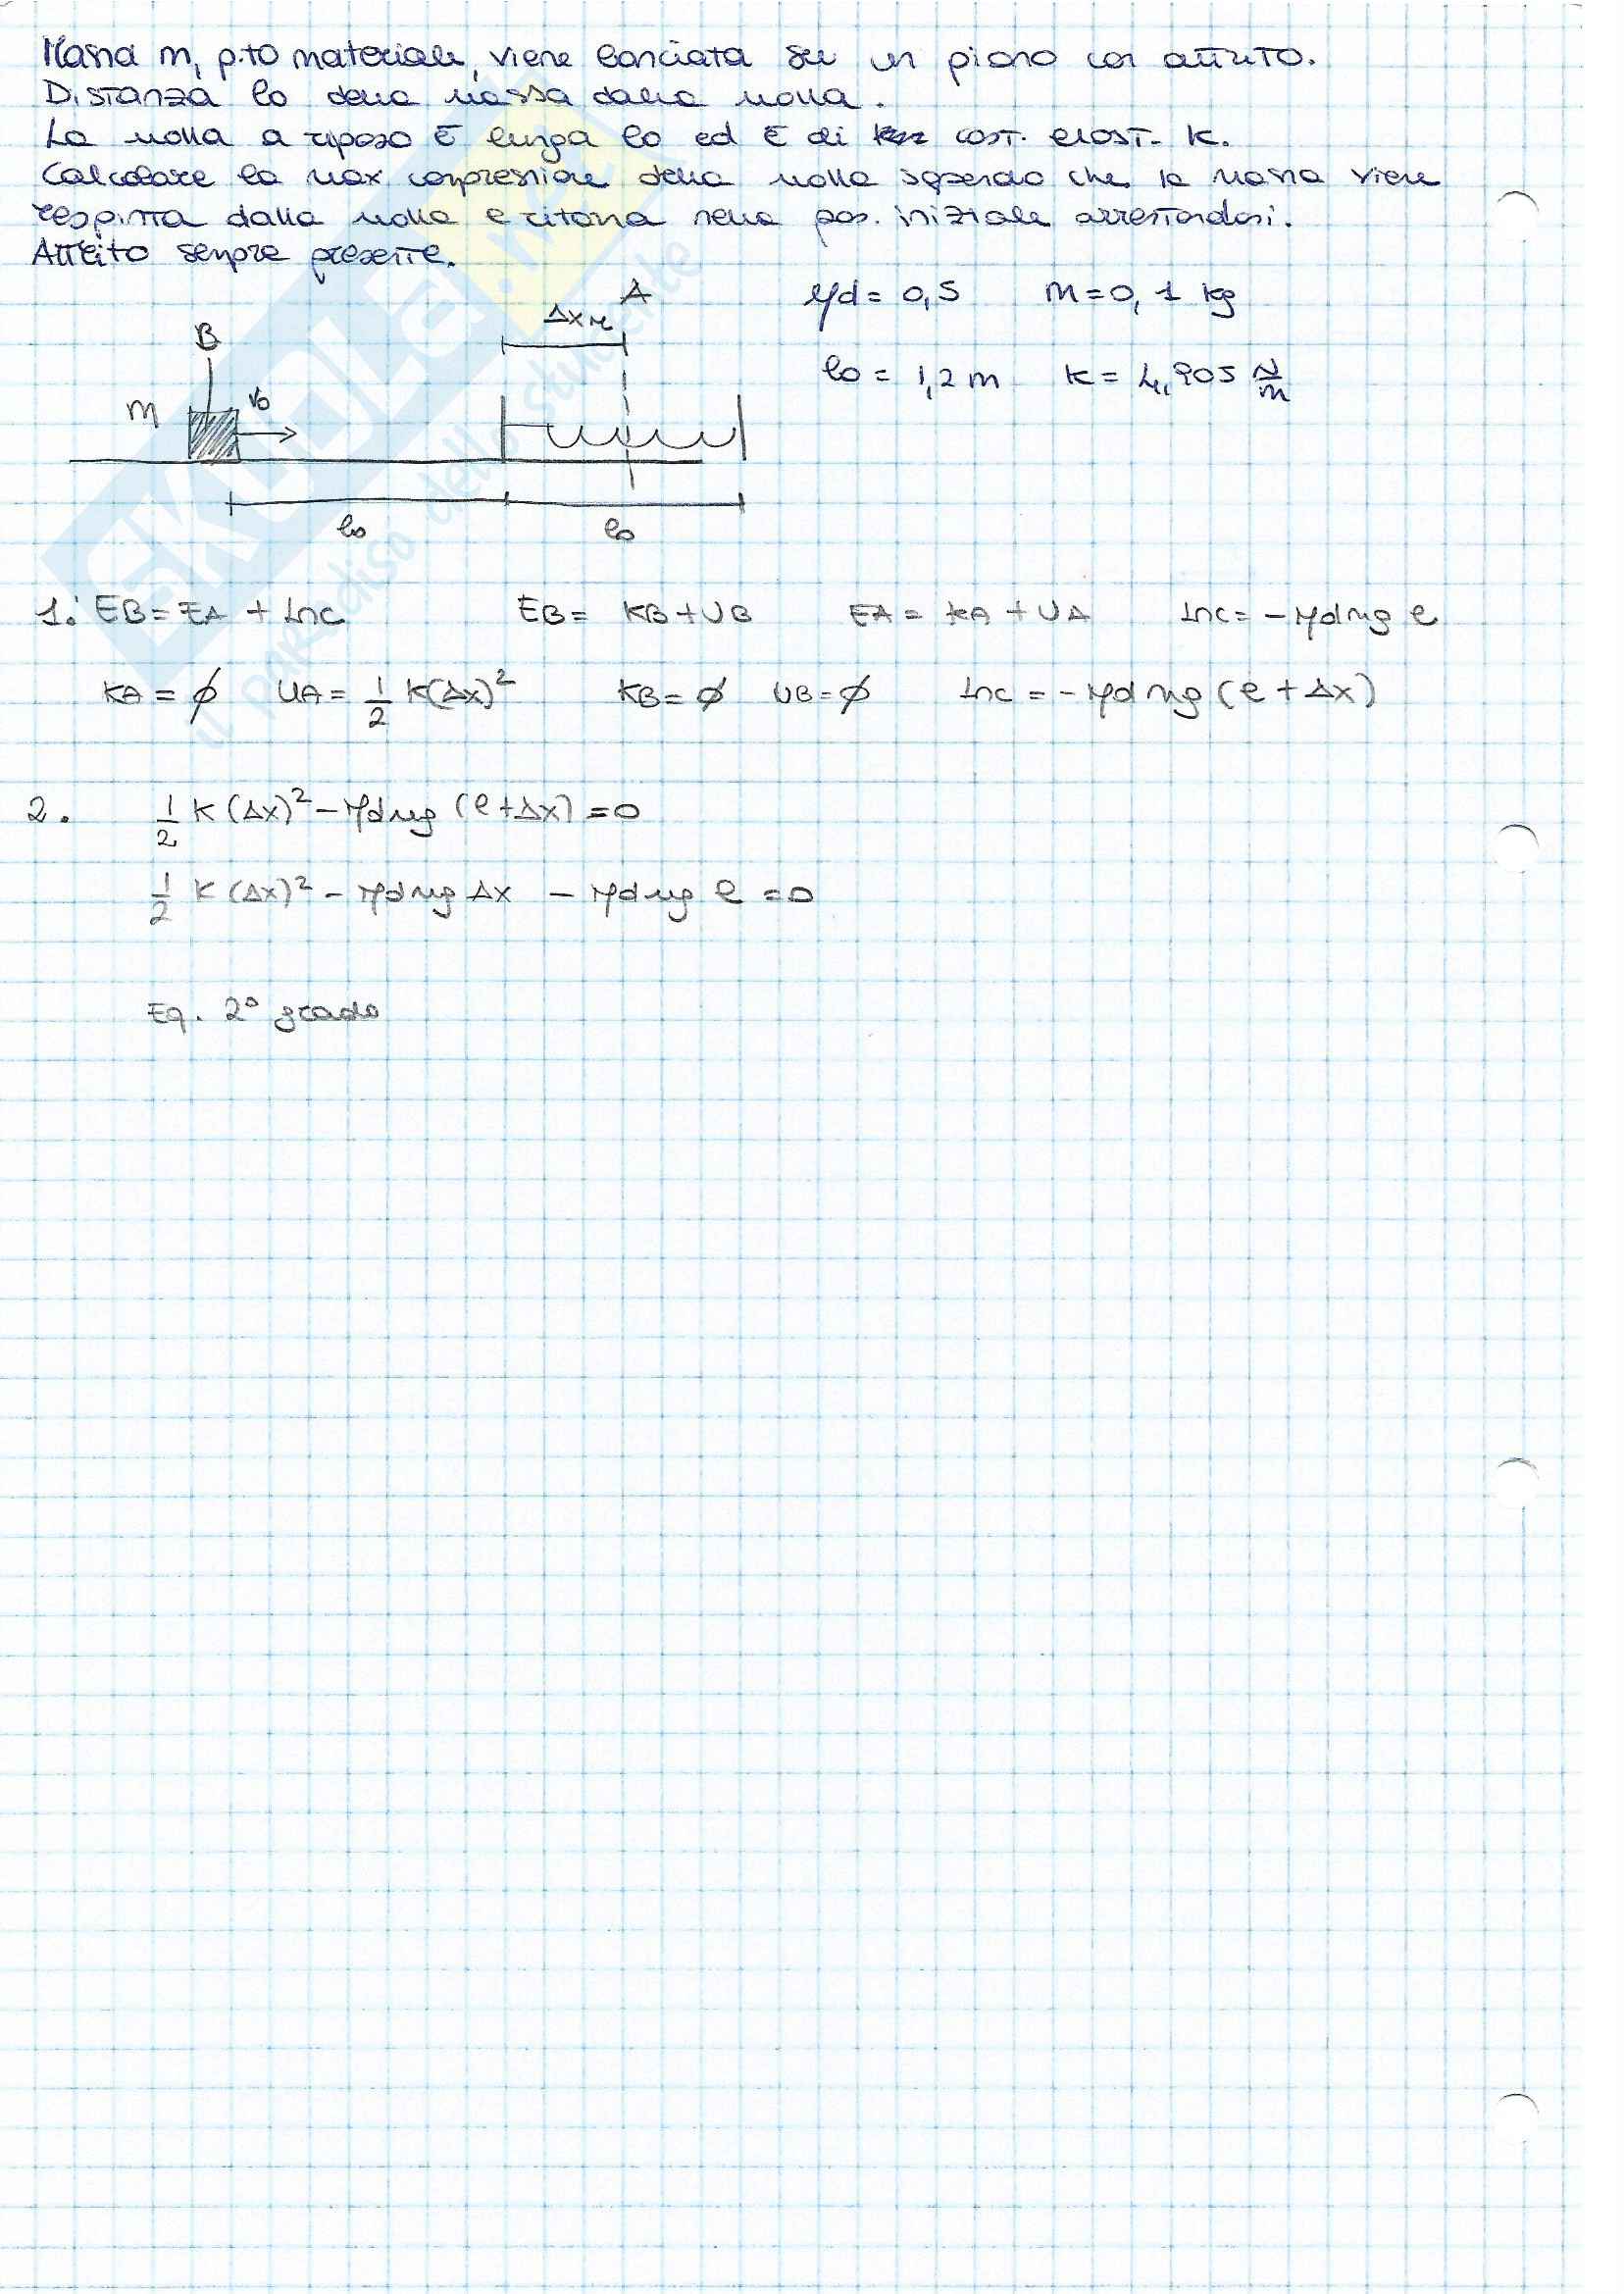 Massa m, p.to materiale, viene lanciata su un piano con attrito.
Distanza lo della massa dalla molla.
La molla a riposo è lunga lo ed è di cost. elast. K.
Calcolare la max compressione della molla sapendo che la massa viene
respinta dalla molla e ritorna nella pos. iniziale arrestandosi.
Attrito sempre presente.
μd = 0,5 m = 0,1 kg
lo = 1,2 m K = 4,905 N/m
A
Δx
B
m
vo
lo lo
SKUOLA.NET
il paradiso dello studente
1. EB = EA + Lnc EB = KB + UB EA = KA + UA Lnc = -μd mg l
KA = ∅ UA = 1/2 K(Δx)² KB = ∅ UB = ∅ Lnc = -μd mg (l + Δx)
2. 1/2 K (Δx)² - μd mg (l + Δx) = 0
1/2 K (Δx)² - μd mg Δx - μd mg l = 0
Eq. 2° grado